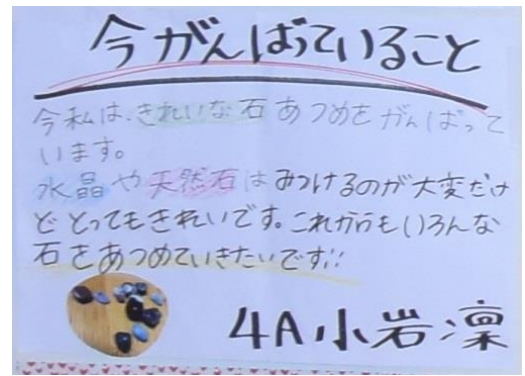 今がんばっていること
今私は、きれいな石あつめをがんばって
います。
水晶や天然石はみつけるのが大変だけ
どとってもきれいです。これからもいろんな
石をあつめていきたいです!!
4A小岩凜